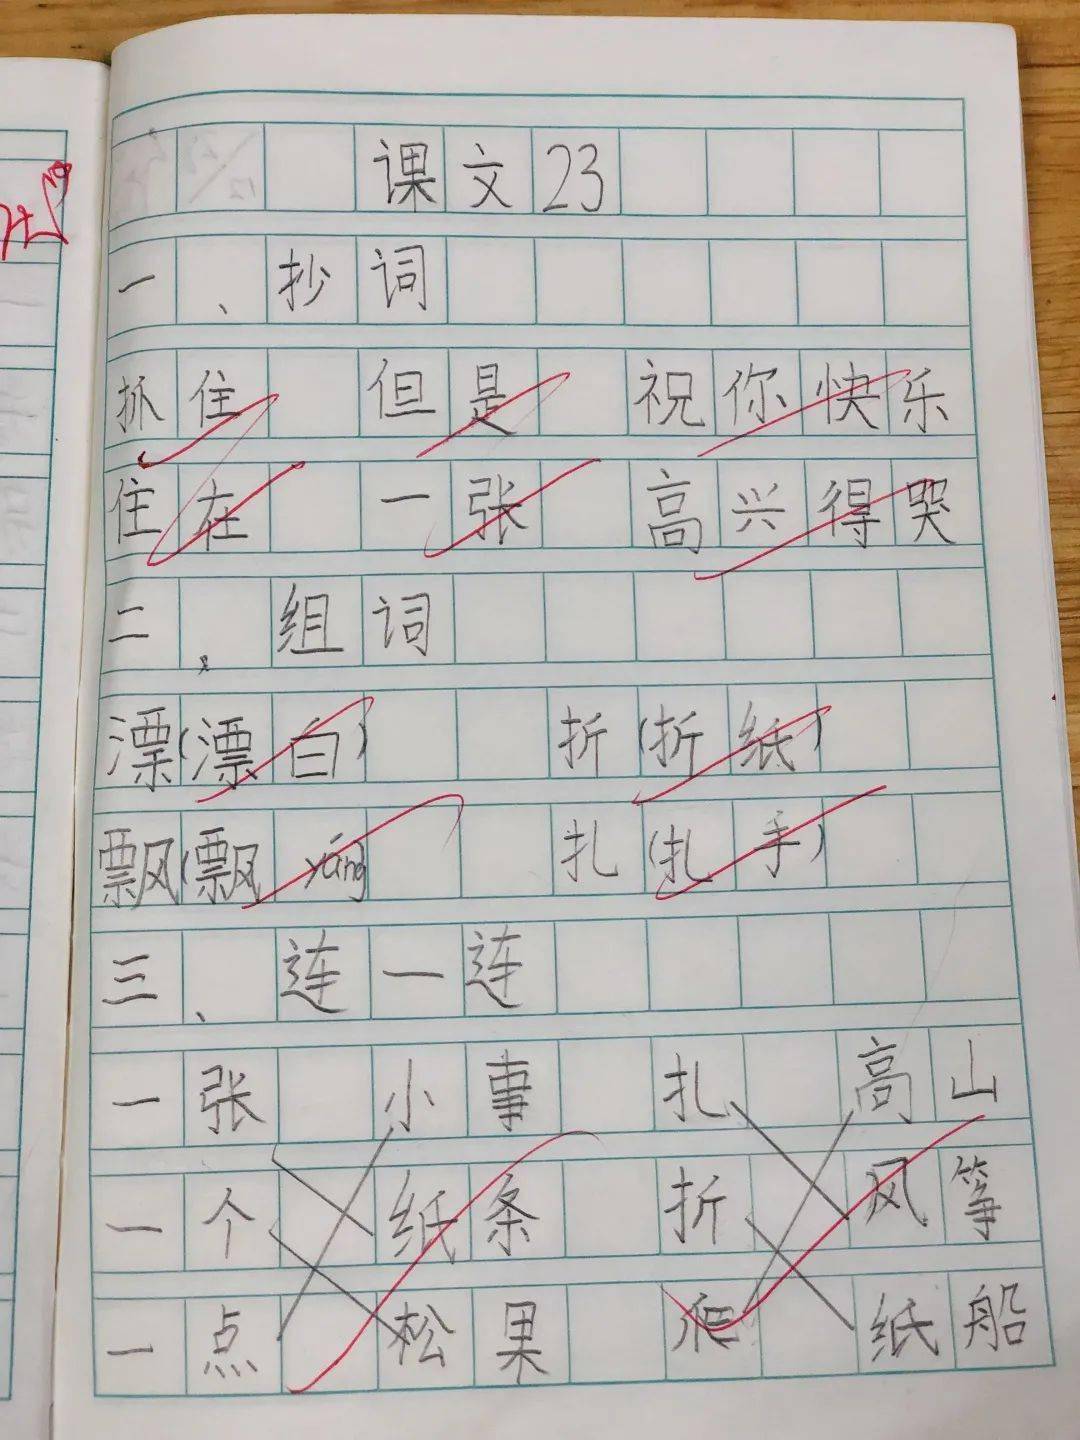 课文23
一、抄词
抓住 但是 祝你快乐
住在 一张 高兴得哭
二、组词
漂(漂白) 折(折纸)
飘(飘yáng) 扎(扎手)
三、连一连
一张 小事 扎 高山
一个 纸条 折 风筝
一点 松果 爬 纸船